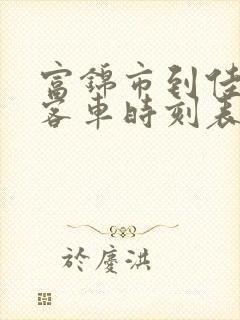 富錦市到佳
客車時刻表
於慶洪